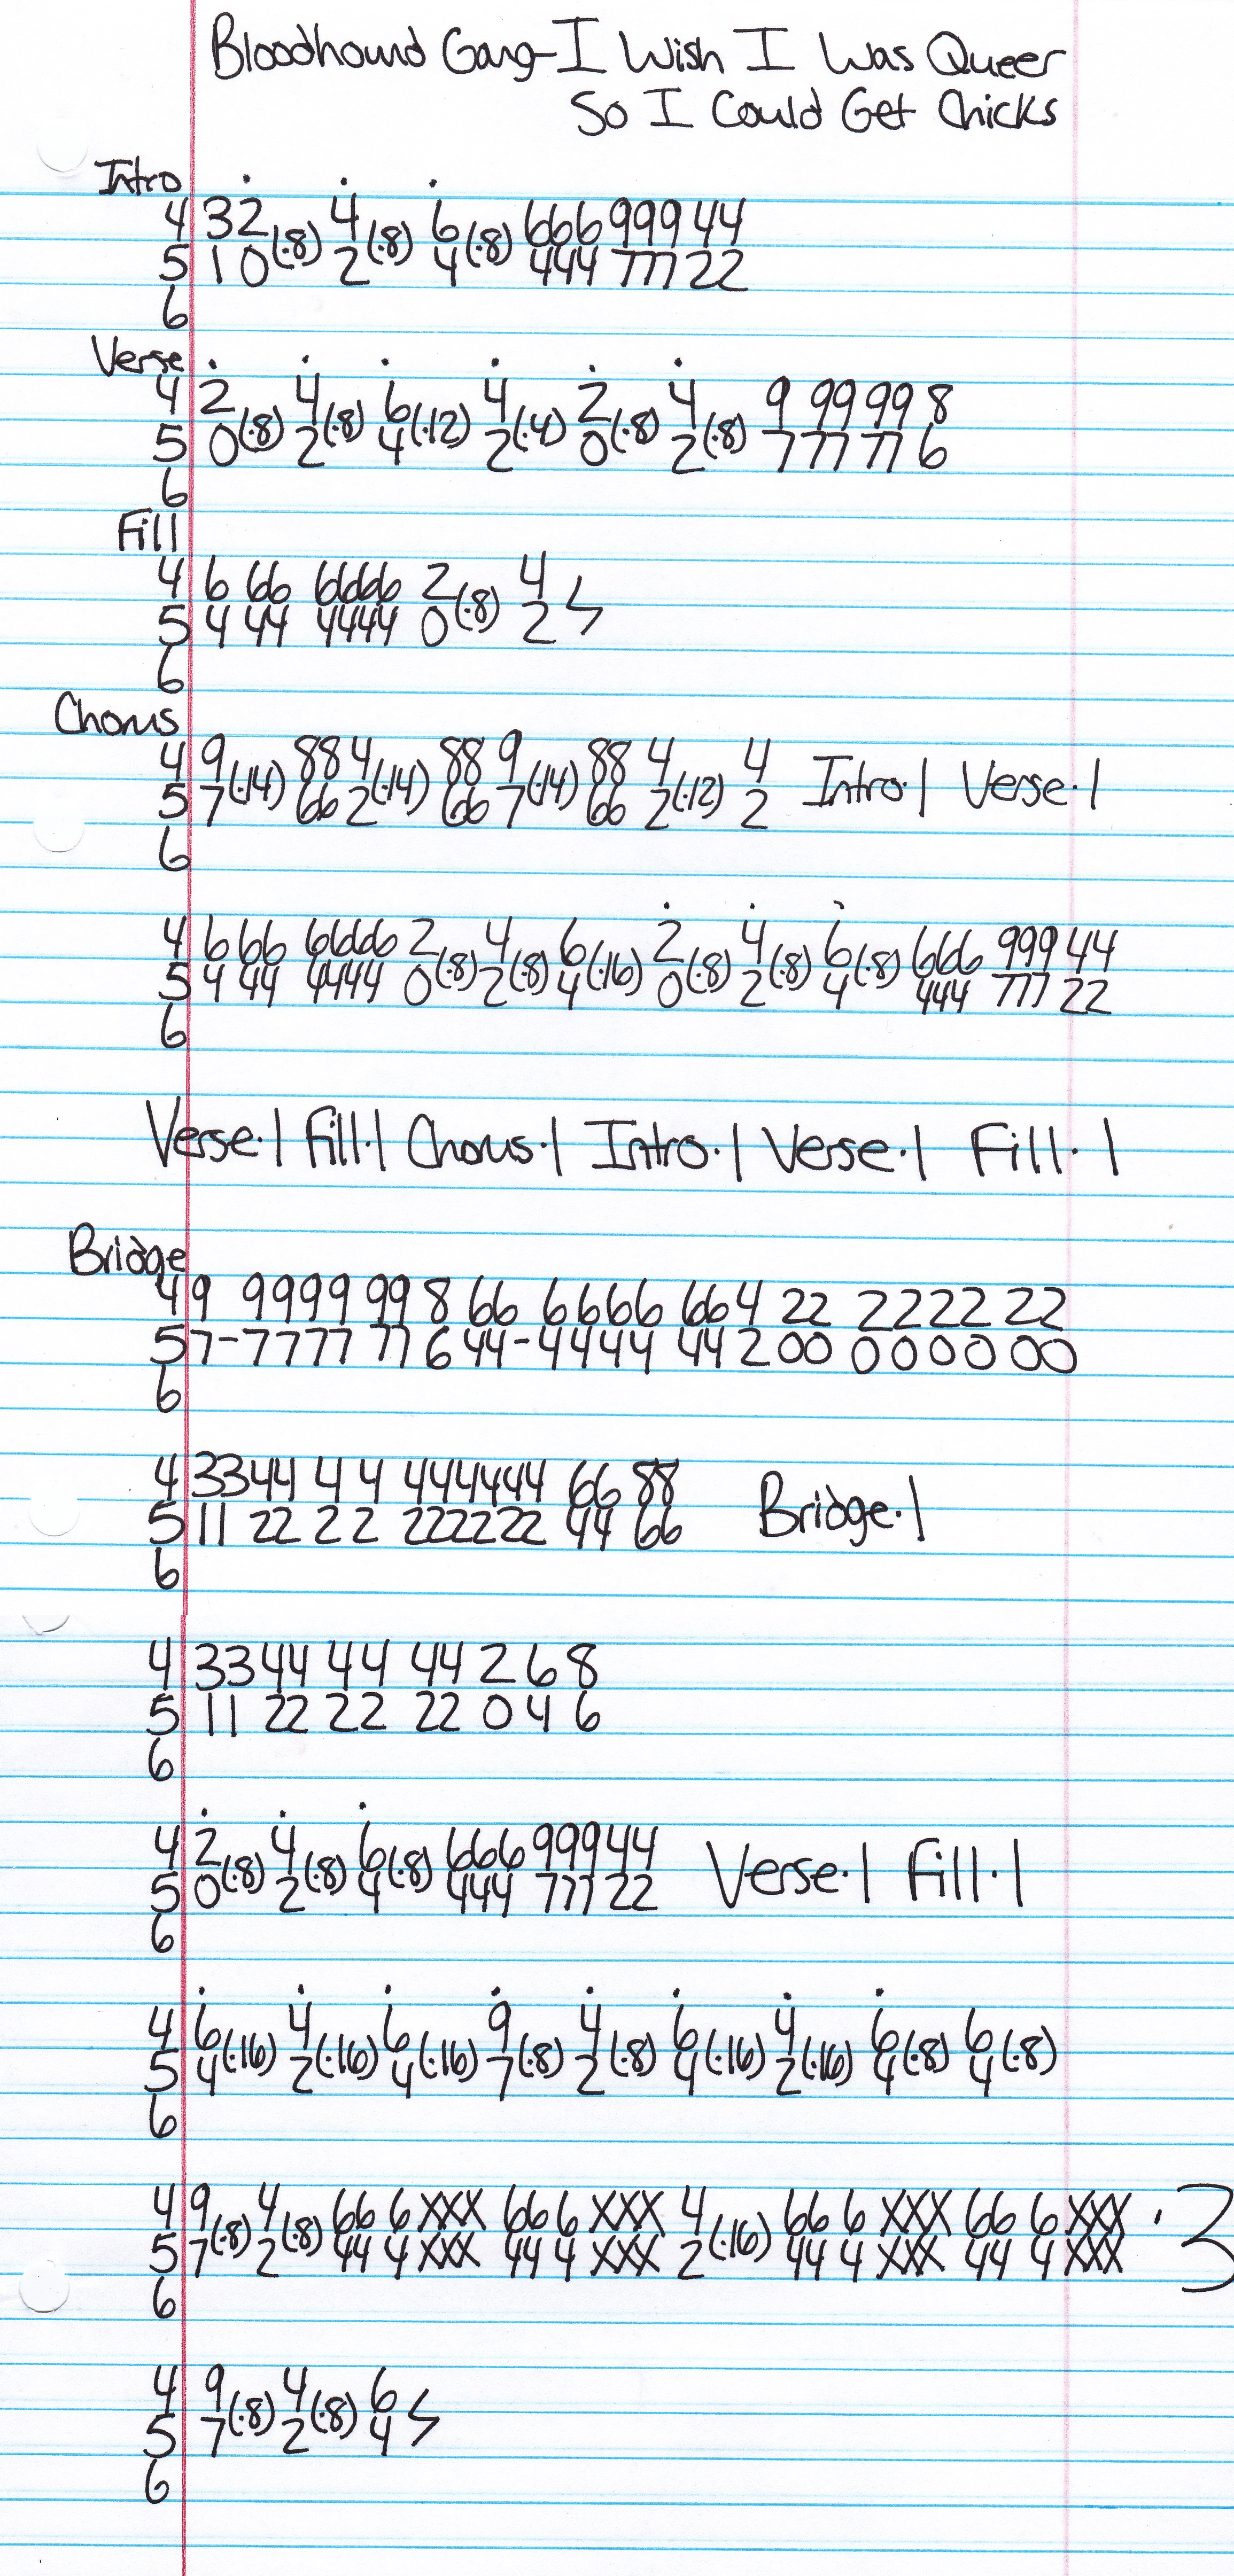 Bloodhound Gang-I Wish I Was Queer
So I Could Get Chicks
Intro
4 32 4 6 666 999 44
5 10(·8) 2(·8) 4(·8) 444 777 22
6
Verse
4 2 4 6 4 2 4 9 99 99 8
5 0(·8) 2(·8) 4(·12) 2(·4) 0(·8) 2(·8) 7 77 77 6
6
Fill
4 6 66 6666 2 4
5 4 44 4444 0(·8) 2
6
Chorus
4 9 88 4 88 9 88 4 4 Intro·1 Verse·1
5 7(·14) 66 2(·14) 66 7(·14) 66 2(·12) 2
6
4 6 66 6666 2 4 6 2 4 6 666 999 44
5 4 44 4444 0(·8) 2(·8) 4(·16) 0(·8) 2(·8) 4(·8) 444 777 22
6
Verse·1 Fill·1 Chorus·1 Intro·1 Verse·1 Fill·1
Bridge
4 9 9999 99 8 66 6666 66 4 22 2222 22
5 7-7777 77 6 44-4444 44 2 00 0000 00
6
4 33 44 4 4 444444 66 88 Bridge·1
5 11 22 2 2 222222 44 66
6
4 33 44 44 44 2 6 8
5 11 22 22 22 0 4 6
6
4 2 4 6 666 999 44 Verse·1 Fill·1
5 0(·8) 2(·8) 4(·8) 444 777 22
6
4 6 4 6 9 4 6 4 6 6
5 4(·16) 2(·16) 4(·16) 7(·8) 2(·8) 4(·16) 2(·16) 4(·8) 4(·8)
6
4 9 4 66 6 XXX 66 6 XXX 4 66 6 XXX 66 6 XXX ·3
5 7(·8) 2(·8) 44 4 XXX 44 4 XXX 2(·16) 44 4 XXX 44 4 XXX
6
4 9 4 6
5 7(·8) 2(·8) 4
6